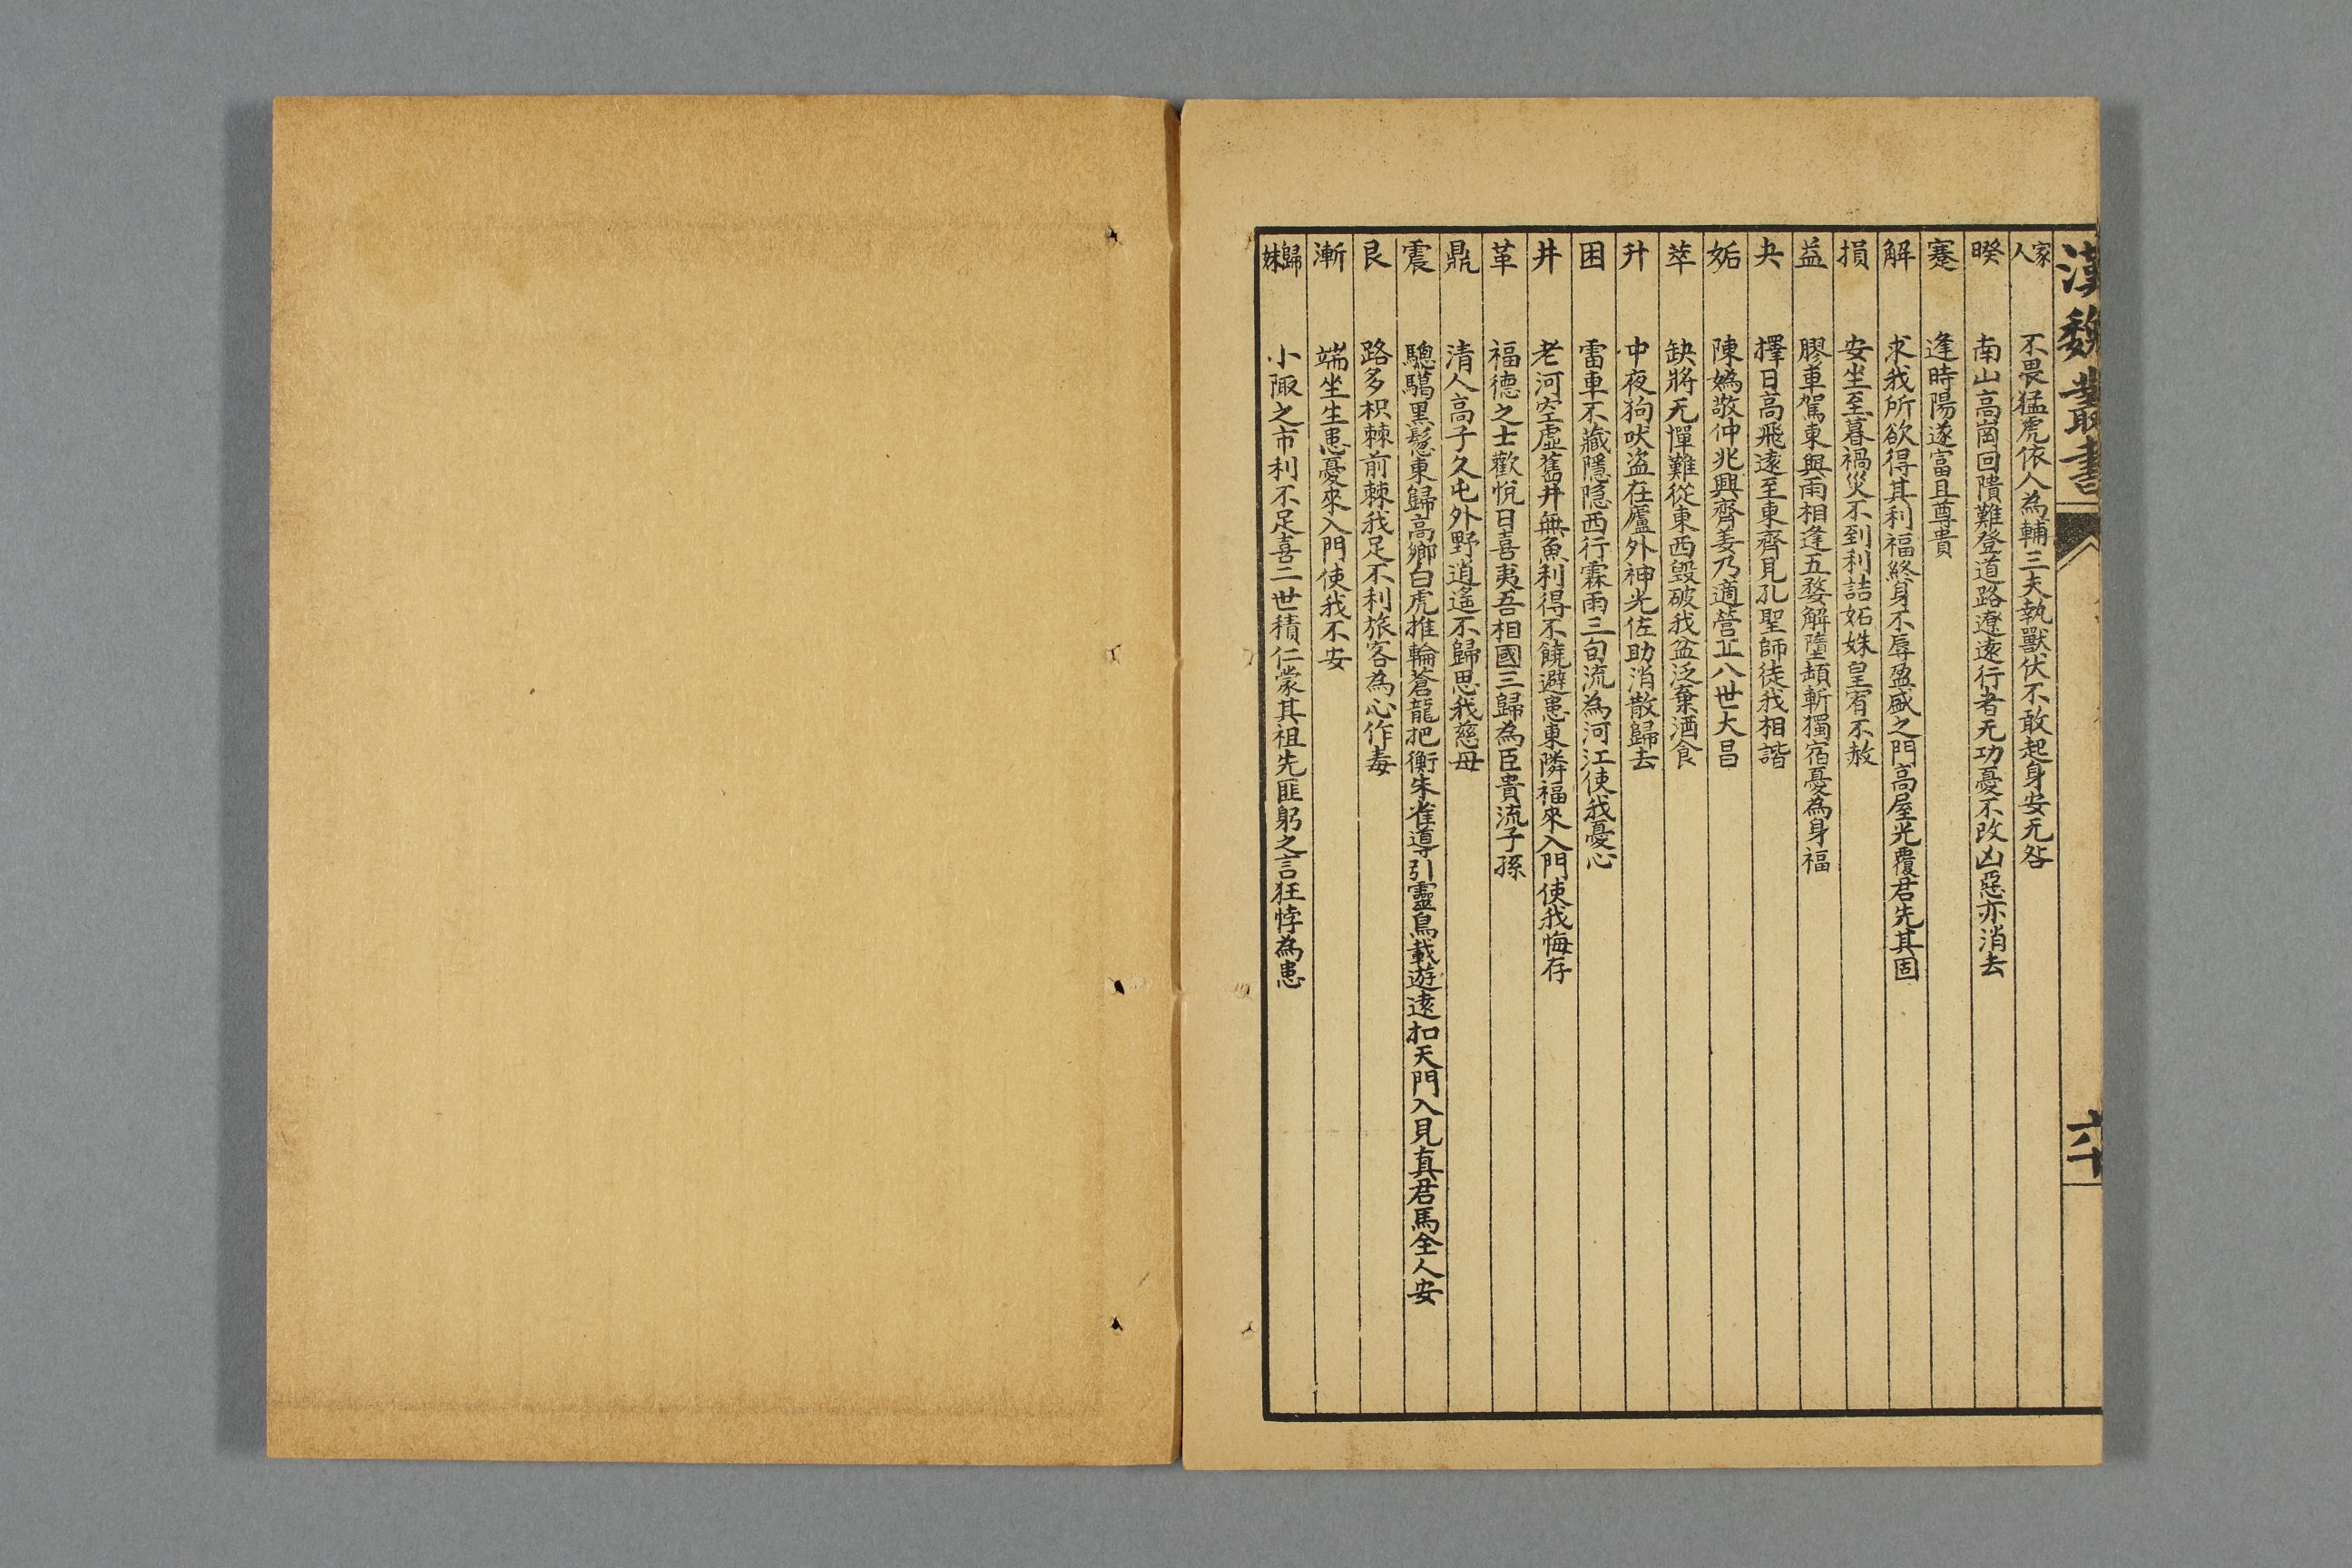 漢魏叢書
六十
家人 不畏猛虎依人為輔三夫執獸伏不敢起身安无咎
暌 南山高崗回隤難登道路遼遠行者无功憂不改凶惡亦消去
蹇 逢時陽遂富且尊貴
解 求我所欲得其利福終身不辱盈盛之門高屋光覆君先其固
損 安坐至暮禍災不到利詰妬姝皇宥不赦
益 膠車駕東與雨相逢五婺解墮頡斬獨宿憂為身福
夬 擇日高飛遠至東齊見孔聖師徒我相諧
姤 陳媯敬仲兆興齊姜乃適營丘八世大昌
萃 缺將无憚難從東西毀破我盆泛棄酒食
升 中夜狗吠盗在廬外神光佐助消散歸去
困 雷車不藏隱隐西行霖雨三旬流為河江使我憂心
井 老河空虛舊井無魚利得不饒避患東隣福來入門使我悔存
革 福德之士歡悅日喜夷吾相國三歸為臣貴流子孫
鼎 清人高子久屯外野逍遙不歸思我慈母
震 驄騧黑鬉東歸高鄉白虎推輪蒼龍把衡朱雀導引靈鳥載遊遠扣天門入見真君馬全人安
艮 路多枳棘前棘我足不利旅客為心作毒
漸 端坐生患憂來入門使我不安
歸妹 小陬之市利不足喜二世積仁蒙其祖先匪躬之言狂悖為患